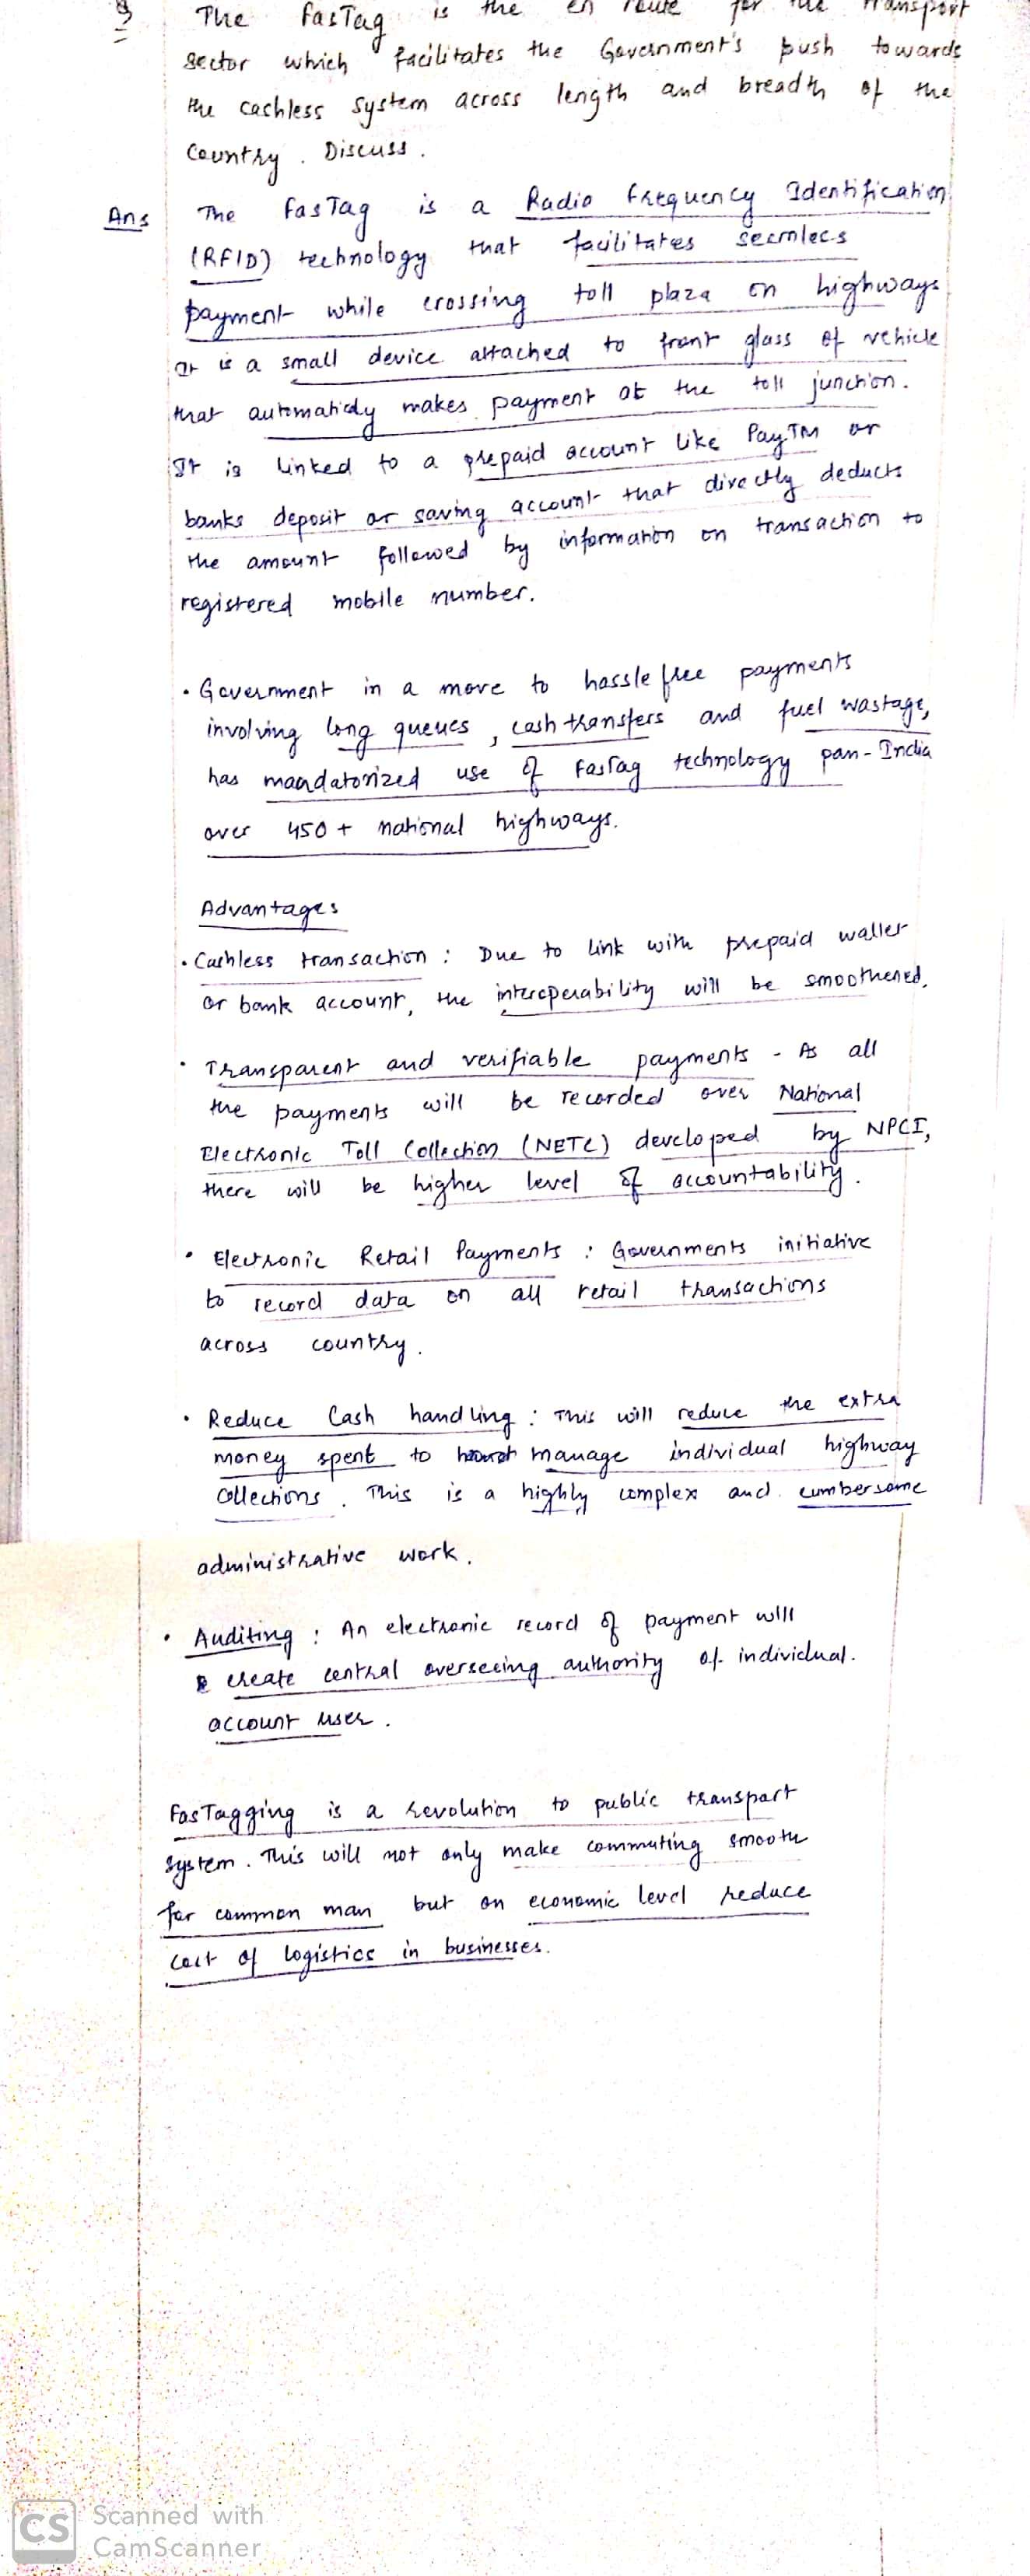 Q The FasTag is the en route for the transport
sector which facilitates the Government's push towards
the cashless system across length and breadth of the
Country. Discuss.
Ans The FasTag is a Radio Frequency Identification
(RFID) technology that facilitates seamless
payment while crossing toll plaza on highways
It is a small device attached to front glass of vehicle
that automaticly makes payment at the toll junction.
It is linked to a prepaid account like PayTM or
banks deposit or saving account that directly deducts
the amount followed by information on transaction to
registered mobile number.
• Government in a move to hassle free payments
involving long queues, cash transfers and fuel wastage,
has mandatorized use of FasTag technology pan-India
over 450+ national highways.
Advantages
• Cashless transaction : Due to link with prepaid wallet
or bank account, the interoperability will be smoothened.
• Transparent and verifiable payments - As all
the payments will be recorded over National
Electronic Toll Collection (NETC) developed by NPCI,
there will be higher level of accountability.
• Electronic Retail Payments : Governments initiative
to record data on all retail transactions
across country.
• Reduce Cash handling : This will reduce the extra
money spent to manage individual highway
collections. This is a highly complex and cumbersome
administrative work.
• Auditing : An electronic record of payment will
create central overseeing authority of individual
account user.
FasTagging is a revolution to public transport
system. This will not only make commuting smooth
for common man but on economic level reduce
cost of logistics in businesses.
CS Scanned with
CamScanner